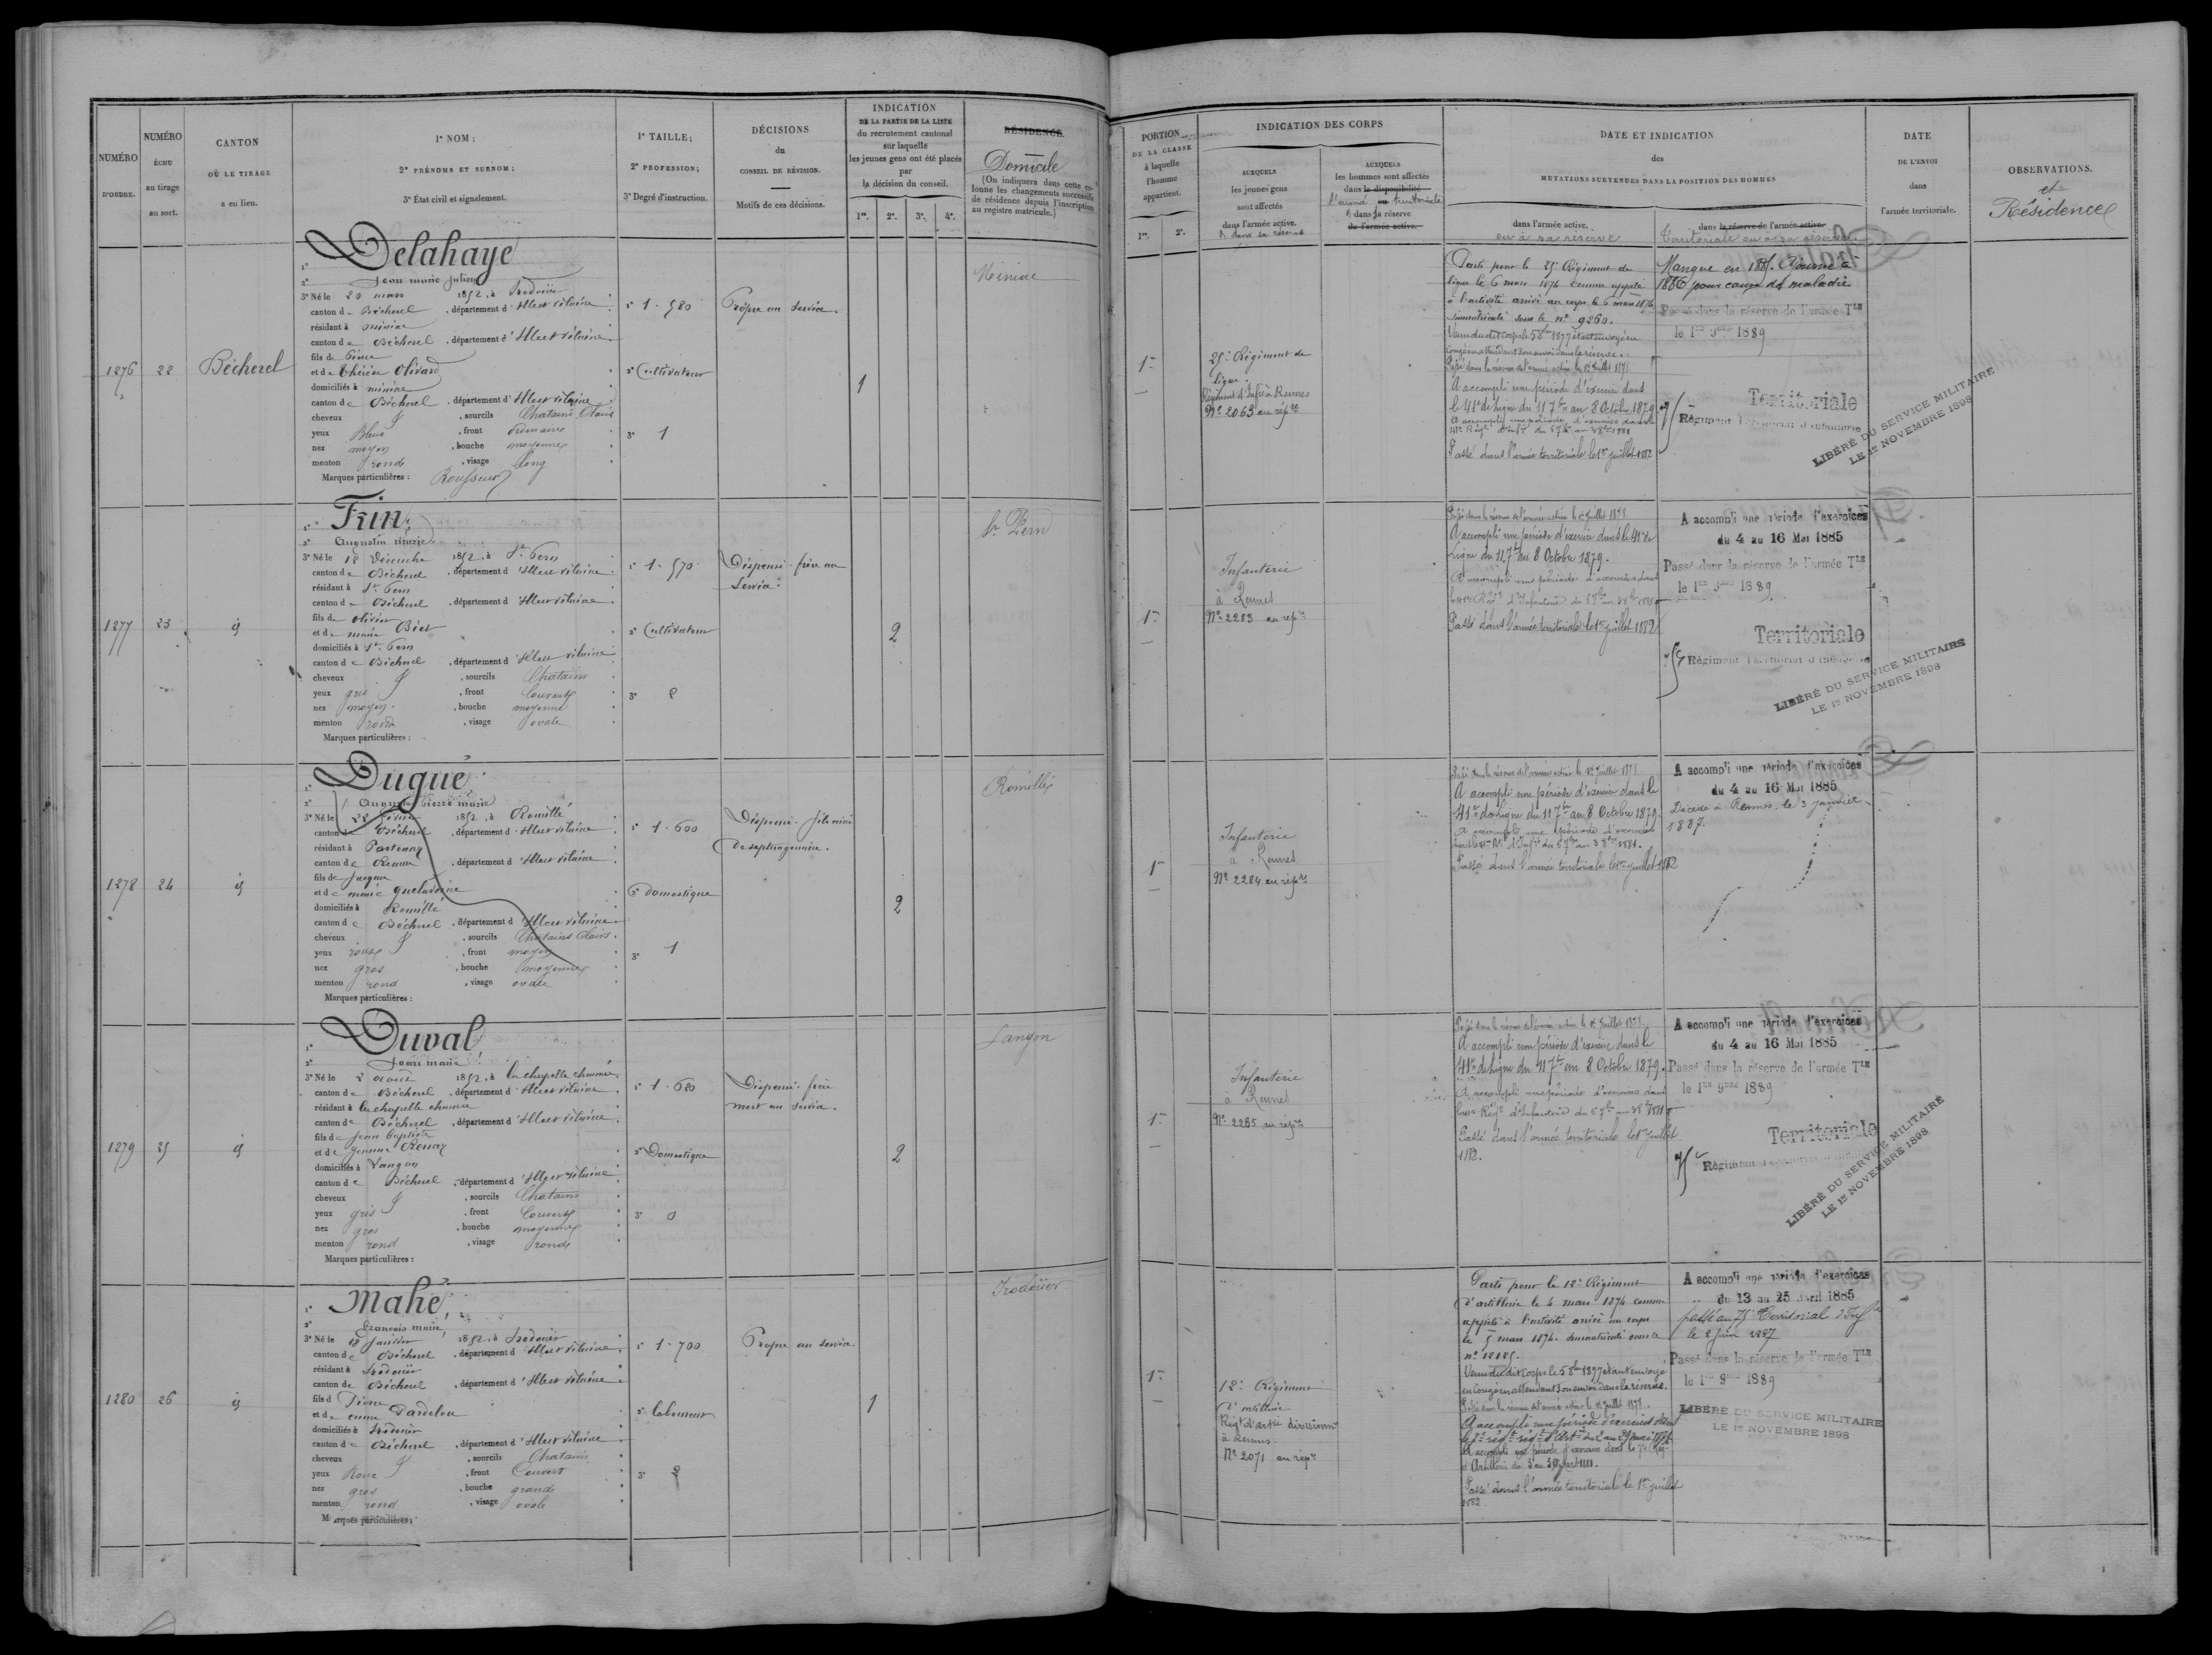 NUMÉRO
D'ORDRE.
NUMÉRO
ÉCHU
au tirage
au sort.
CANTON
OÙ LE TIRAGE
a eu lieu.
1º NOM;
2º PRÉNOMS ET SURNOM;
3º État civil et signalement.
1º TAILLE;
2º PROFESSION;
3º Degré d'instruction.
DÉCISIONS
du
CONSEIL DE RÉVISION.
Motifs de ces décisions.
INDICATION
DE LA PARTIE DE LA LISTE
du recrutement cantonal
sur laquelle
les jeunes gens ont été placés
par
la décision du conseil.
1re. 2e. 3e. 4e.
RÉSIDENCE.
Domicile
(On indiquera dans cette co-
lonne les changements successifs
de résidence depuis l'inscription
au registre matricule.)
1276
22
Bécherel
Delahaye
2º Jean marie Julien
3º Né le 20 mars 1852, à Irodouër
canton de Bécherel, département d'Ille et vilaine
résidant à miniac
canton de Bécherel, département d'Ille et vilaine
fils de Pierre
et de thérèse Olivard
domiciliés à miniac
canton de Bécherel, département d'Ille et vilaine
cheveux &, sourcils Chatains Clairs
yeux Bleus, front ordinaire
nez moyen, bouche moyenne
menton rond, visage long
Marques particulières : Rousseurs
1º 1.580
2º Cultivateur
3º 1
Propre au service.
1
Miniac
1277
23
id
Frin
2º Augustin marie
3º Né le 18 Décembre 1852, à St. Pern
canton de Bécherel, département d'Ille et vilaine
résidant à St. Pern
canton de Bécherel, département d'Ille et vilaine
fils de olivier
et de marie Biet
domiciliés à St. Pern
canton de Bécherel, département d'Ille et vilaine
cheveux &, sourcils Chatains
yeux gris, front Couvert
nez moyen, bouche moyenne
menton rond, visage ovale
Marques particulières :
1º 1.570
2º Cultivateur
3º 2
Dispensé. frère au
Service.
2
St. Pern
1278
24
id
Dugué
2º Auguste Pierre marie
3º Né le février 1852, à Romillé
canton de Bécherel, département d'Ille et vilaine
résidant à Partenay
canton de Rennes, département d'Ille et vilaine
fils de Jacques
et de marie
domiciliés à Romillé
canton de Bécherel, département d'Ille et vilaine
cheveux &, sourcils Chatains Clairs
yeux roux, front moyen
nez gros, bouche moyenne
menton rond, visage ovale
Marques particulières :
1º 1.600
2º Domestique
3º 1
Dispensé. fils ainé
de septuagénaire.
2
Romillé
1279
25
id
Duval
2º Jean marie
3º Né le 2 août 1852, à la chapelle chaussée
canton de Bécherel, département d'Ille et vilaine
résidant à la chapelle chaussée
canton de Bécherel, département d'Ille et vilaine
fils de Jean Baptiste
et de Jeanne
domiciliés à Langan
canton de Bécherel, département d'Ille et vilaine
cheveux &, sourcils Chatains
yeux gris, front Couvert
nez gros, bouche moyenne
menton rond, visage rond
Marques particulières :
1º 1.680
2º Domestique
3º 0
Dispensé. frère
mort au service.
2
Langon
1280
26
id
Mahé
2º François marie
3º Né le 18 Janvier 1852, à Irodouër
canton de Bécherel, département d'Ille et vilaine
résidant à Irodouër
canton de Bécherel, département d'Ille et vilaine
fils de Pierre
et de emma Dardelou
domiciliés à Irodouër
canton de Bécherel, département d'Ille et vilaine
cheveux &, sourcils Chatains
yeux Roux, front Couvert
nez gros, bouche grande
menton rond, visage ovale
Marques particulières :
1º 1.700
2º laboureur
3º 2
Propre au service.
1
Irodouër
PORTION
DE LA CLASSE
à laquelle
l'homme
appartient.
1re. 2e.
INDICATION DES CORPS
AUXQUELS
les jeunes gens
sont affectés
dans l'armée active.
& dans sa réserve
AUXQUELS
les hommes sont affectés
dans la disponibilité
l'armée territoriale
& dans sa réserve
de l'armée active.
DATE ET INDICATION
des
MUTATIONS SURVENUES DANS LA POSITION DES HOMMES
dans l'armée active.
ou à sa réserve
dans la réserve de l'armée active
Territoriale ou à sa réserve
DATE
DE L'ENVOI
dans
l'armée territoriale.
OBSERVATIONS.
et
Résidence
1re
25e Régiment de
ligne.
Régiment d'Infie à Rennes
No 2063 au répre
Parti pour le 25e Régiment de
ligne le 6 mars 1874 comme appelé
à l'activité arrivé au corps le 6 mars 1874
immatriculé sous le no 9260.
Venu du dit corps le 5 8bre 1877 étant envoyé en
congé en attendant son envoi dans la réserve.
Passé dans la réserve de l'armée active le 1er Juillet 1878
A accompli une période d'exercice dans
le 41e de ligne du 11 7bre au 8 Octobre 1879.
A accompli une période d'exercices dans le
41e Régt d'Infie du 5 7bre au 3 8bre 1881
Passé dans l'armée territoriale le 1er juillet 1882
Manque en 1885. Ajourné à
1886 pour cause de maladie
Passé dans la réserve de l'armée Tle
le 1er 9bre 1889
Territoriale
75e Régiment Territorial d'Infanterie
LIBÉRÉ DU SERVICE MILITAIRE
LE 1er NOVEMBRE 1898
1re
Infanterie
à Rennes
No 2283 au répre
Passé dans la réserve de l'armée active le 1er Juillet 1878
A accompli une période d'exercice dans le 41e de
Ligne du 11 7bre au 8 Octobre 1879.
A accompli une période d'exercices dans
le 41e Régt d'Infanterie du 5 7bre au 3 8bre 1881
Passé dans l'armée territoriale le 1er juillet 1882
A accompli une période d'exercices
du 4 au 16 Mai 1885
Passé dans la réserve de l'armée Tle
le 1er 9bre 1889
Territoriale
75e Régiment Territorial d'Infanterie
LIBÉRÉ DU SERVICE MILITAIRE
LE 1er NOVEMBRE 1898
1re
Infanterie
à Rennes
No 2284 au répre
Passé dans la réserve de l'armée active le 1er Juillet 1878
A accompli une période d'exercice dans le
41e de Ligne du 11 7bre au 8 Octobre 1879.
A accompli une période d'exercices
dans le 41e Rt d'Infie du 5 7bre au 3 8bre 1881.
Passé dans l'armée territoriale le 1er juillet 1882
A accompli une période d'exercices
du 4 au 16 Mai 1885
Décédé à Rennes, le 3 janvier
1887.
1re
Infanterie
à Rennes
No 2285 au répre
Passé dans la réserve de l'armée active le 1er Juillet 1878
A accompli une période d'exercice dans le
41e de Ligne du 11 7bre au 8 Octobre 1879.
A accompli une période d'exercices dans
le 41e Régt d'Infanterie du 5 7bre au 3 8bre 1881
Passé dans l'armée territoriale le 1er juillet
1882.
A accompli une période d'exercices
du 4 au 16 Mai 1885
Passé dans la réserve de l'armée Tle
le 1er 9bre 1889
Territoriale
75e Régiment Territorial d'Infanterie
LIBÉRÉ DU SERVICE MILITAIRE
LE 1er NOVEMBRE 1898
1re
12e Régiment
d'artillerie
Régt d'artie divisionre
à Rennes.
No 2071 au répre
Parti pour le 12e Régiment
d'artillerie le 4 mars 1874 comme
appelé à l'activité arrivé au corps
le 5 mars 1874. immatriculé sous le
no 12125.
Venu du dit Corps le 5 8bre 1877 étant envoyé
en congé en attendant son envoi dans la réserve.
Passé dans la réserve de l'armée active le 1er Juillet 1878.
A accompli une période d'exercices dans
le 7e régt d'Artie du 2 au 29 mai 1879
A accompli une période d'exercices dans le 7e Régt
d'Artillerie du 3 au 30 1881.
Passé dans l'armée territoriale le 1er juillet
1882.
A accompli une période d'exercices
du 13 au 25 Avril 1885
passé au 75e Territorial d'Infie
le 8 Juin 1887
Passé dans la réserve de l'armée Tle
le 1er 9bre 1889
LIBÉRÉ DU SERVICE MILITAIRE
LE 1er NOVEMBRE 1898